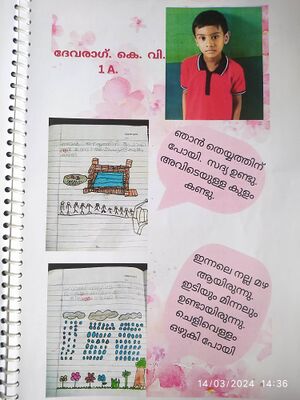 ദേവരാഗ്. കെ. വി.
1 A.
ഞാൻ തെയ്യത്തിന്
പോയി. സദ്യ ഉണ്ടു.
അവിടെയുള്ള കുളം
കണ്ടു.
ഇന്നലെ നല്ല മഴ
ആയിരുന്നു.
ഇടിയും മിന്നലും
ഉണ്ടായിരുന്നു.
ചെളിവെള്ളം
ഒഴുകി പോയി
14/03/2024 14:36